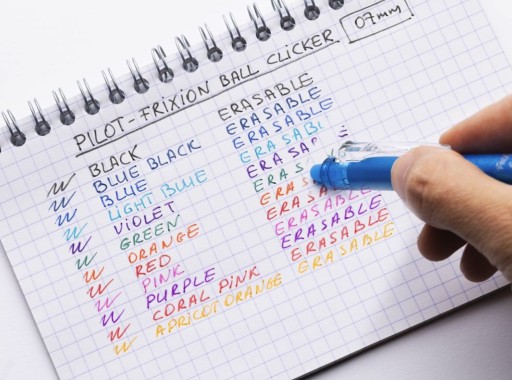 PILOT-FRIXION BALL CLICKER 07mm
BLACK ERASABLE
BLUE BLACK ERASABLE
BLUE ERASABLE
LIGHT BLUE ERASABL
VIOLET ERASA
GREEN ERAS
ORANGE ERAS
RED ERASABLE
PINK ERASABLE
PURPLE ERASABLE
CORAL PINK ERASABLE
APRICOT ORANGE ERASABLE